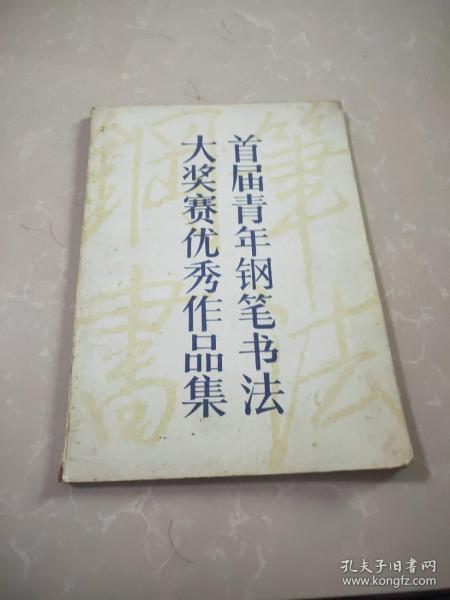 首届青年钢笔书法
大奖赛优秀作品集
鋼筆
書法
孔夫子旧书网
www.kongfz.com